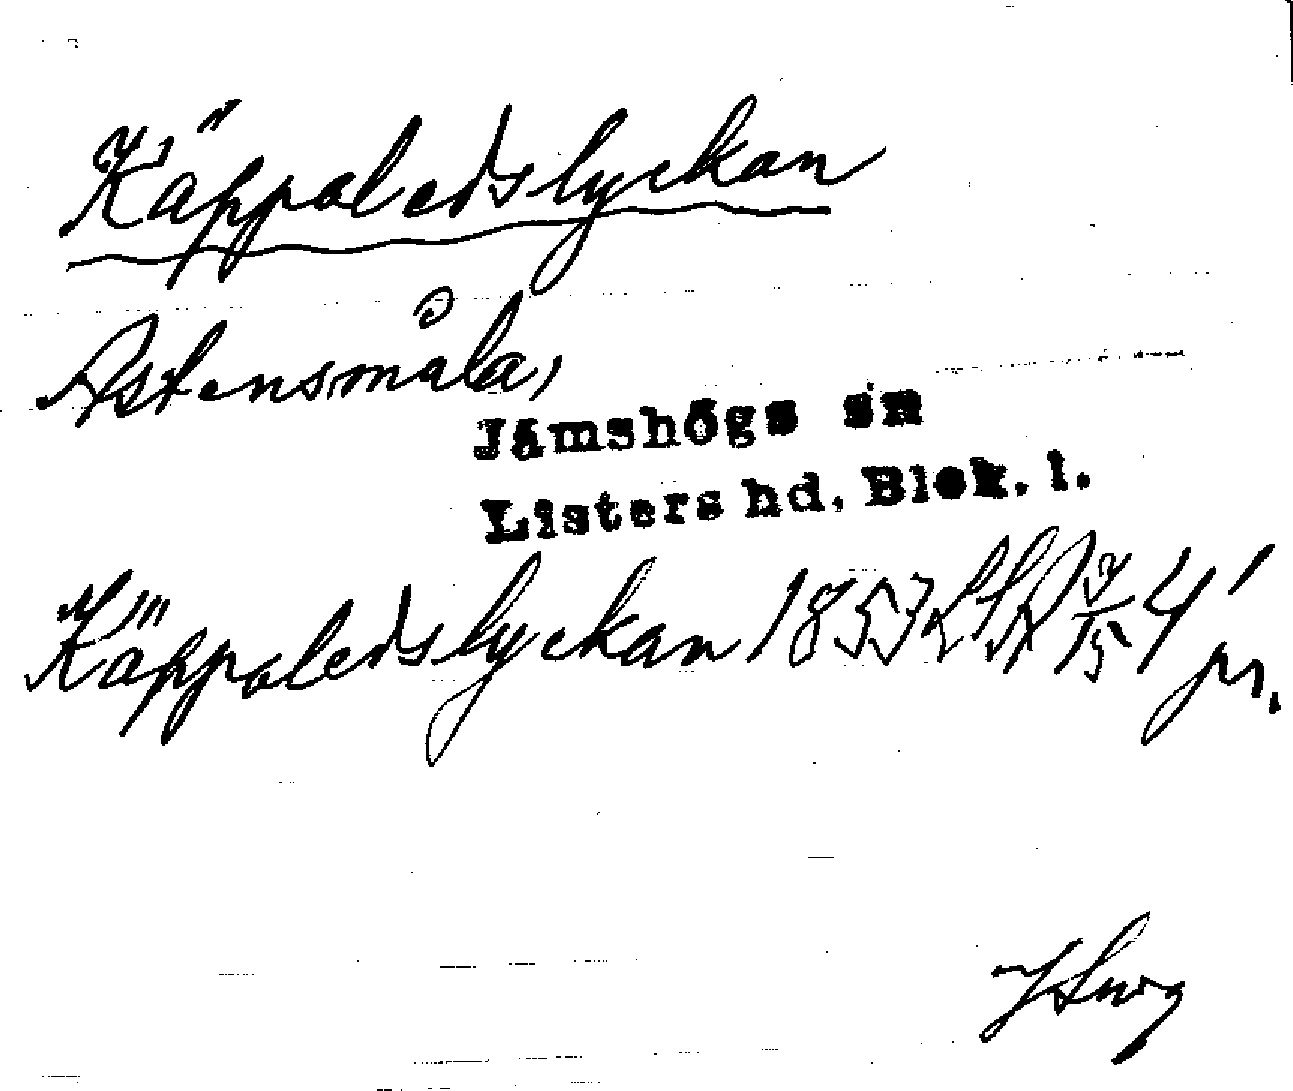 Käppaledslyckan
Astensmåla,
Jämshögs sn
Listers hd. Blek. l.
Käppaledslyckan 1857 4' pr.